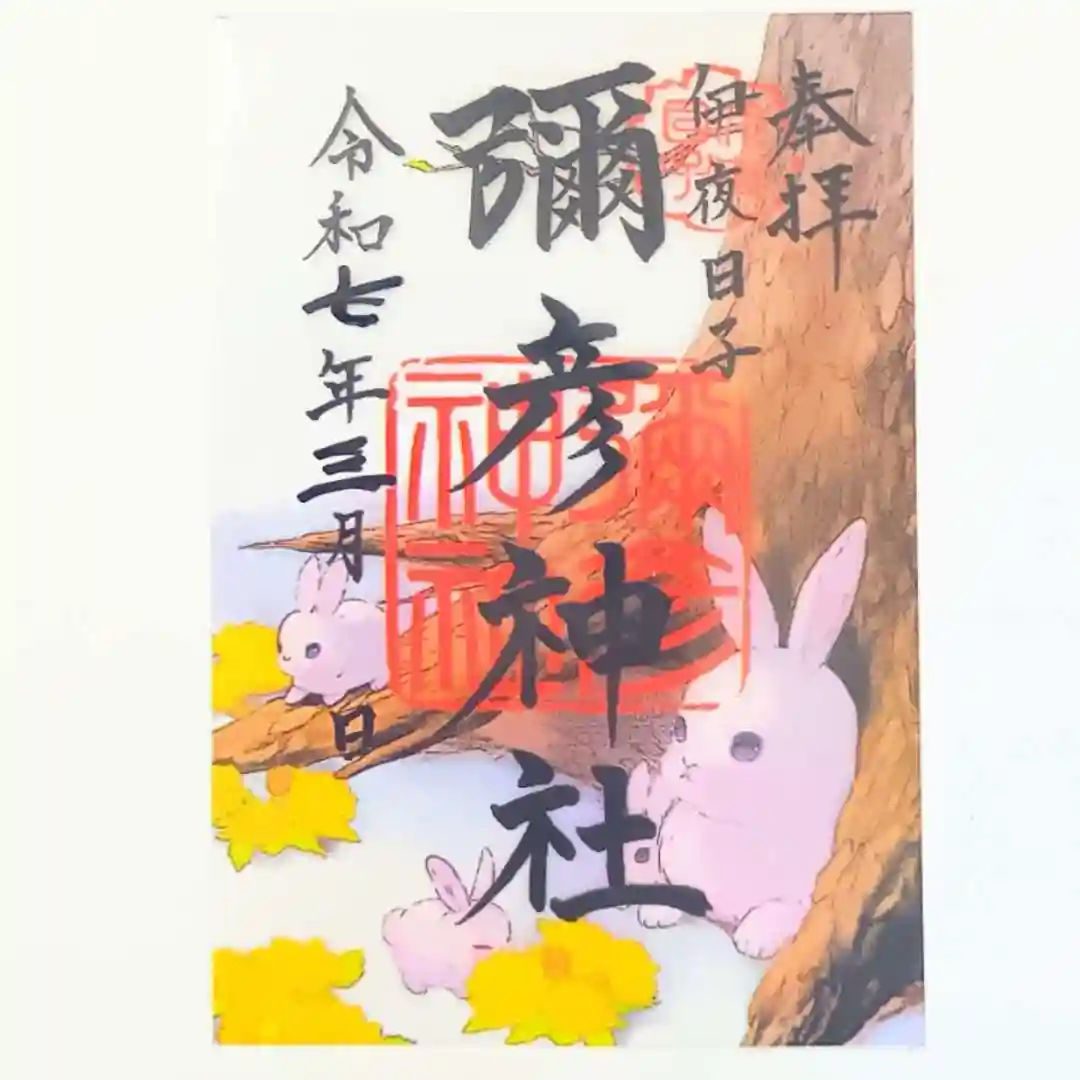 奉拝
伊夜日子
彌彦神社
令和七年三月 日